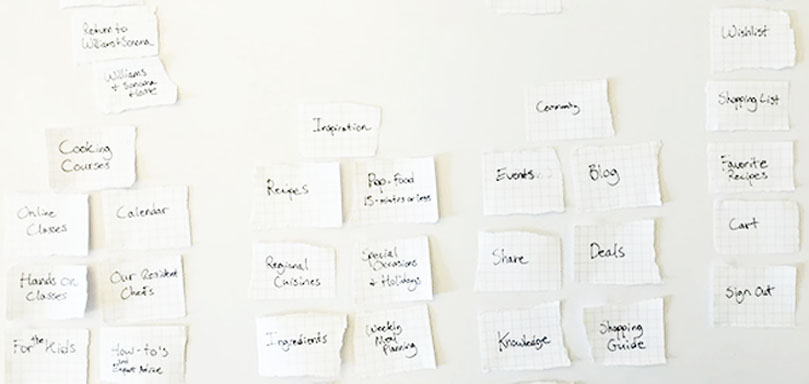 Return to
Williams & Sonoma
Williams
& Sonoma
Home
Cooking
Courses
Online
Classes
Calendar
Hands On
Classes
Our Resident
Chefs
For the Kids
How-to's
and
Expert Advice
Inspiration
Recipes
Pop-Food
15-minutes or less
Regional
Cuisines
Special
Occasions
& Holidays
Ingredients
Weekly
Meal
Planning
Community
Events
Blog
Share
Deals
Knowledge
Shopping
Guide
Wishlist
Shopping List
Favorite
Recipes
Cart
Sign Out